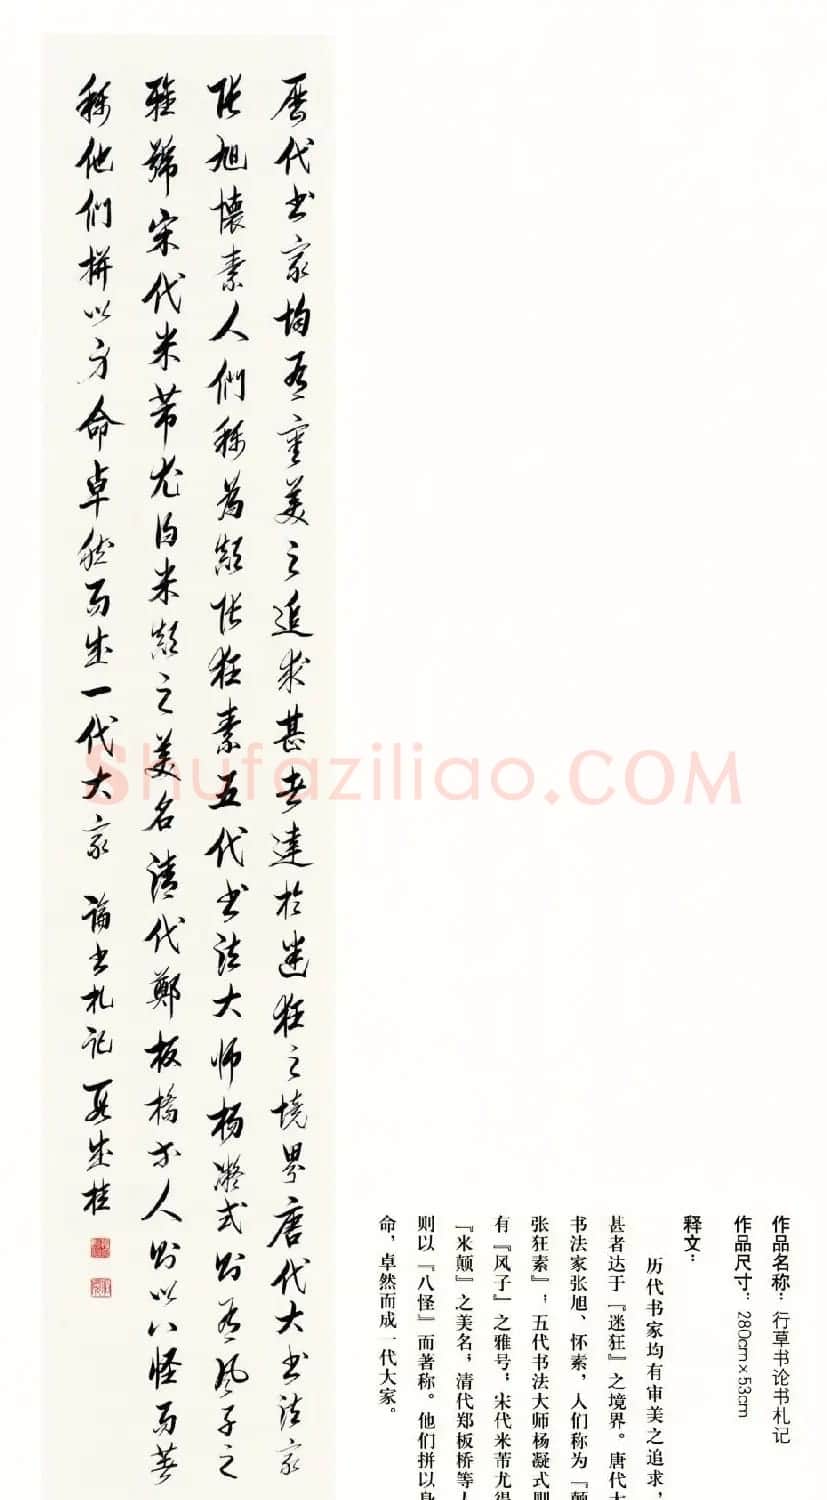 历代书家均有审美之追求甚者達於迷狂之境界唐代大书法家
张旭懷素人們称為颠张狂素五代书法大师杨凝式则有风子之
雅號宋代米芾尤得米颠之美名清代鄭板橋等人则以八怪而著
称他们拼以身命卓然而成一代大家 論书札记 成桂
作品名称：行草书论书札记
作品尺寸：280cm×53cm
释文：
历代书家均有审美之追求，
甚者达于『迷狂』之境界。唐代大
书法家张旭、怀素，人们称为『颠
张狂素』；五代书法大师杨凝式则
有『风子』之雅号；宋代米芾尤得
『米颠』之美名；清代郑板桥等人
则以『八怪』而著称。他们拼以身
命，卓然而成一代大家。
Shufaziliao.COM